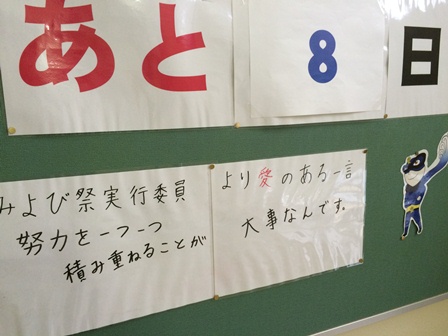 あと8日
みよび祭実行委員
努力を一つ一つ
積み重ねることが
より愛のある一言
大事なんです。